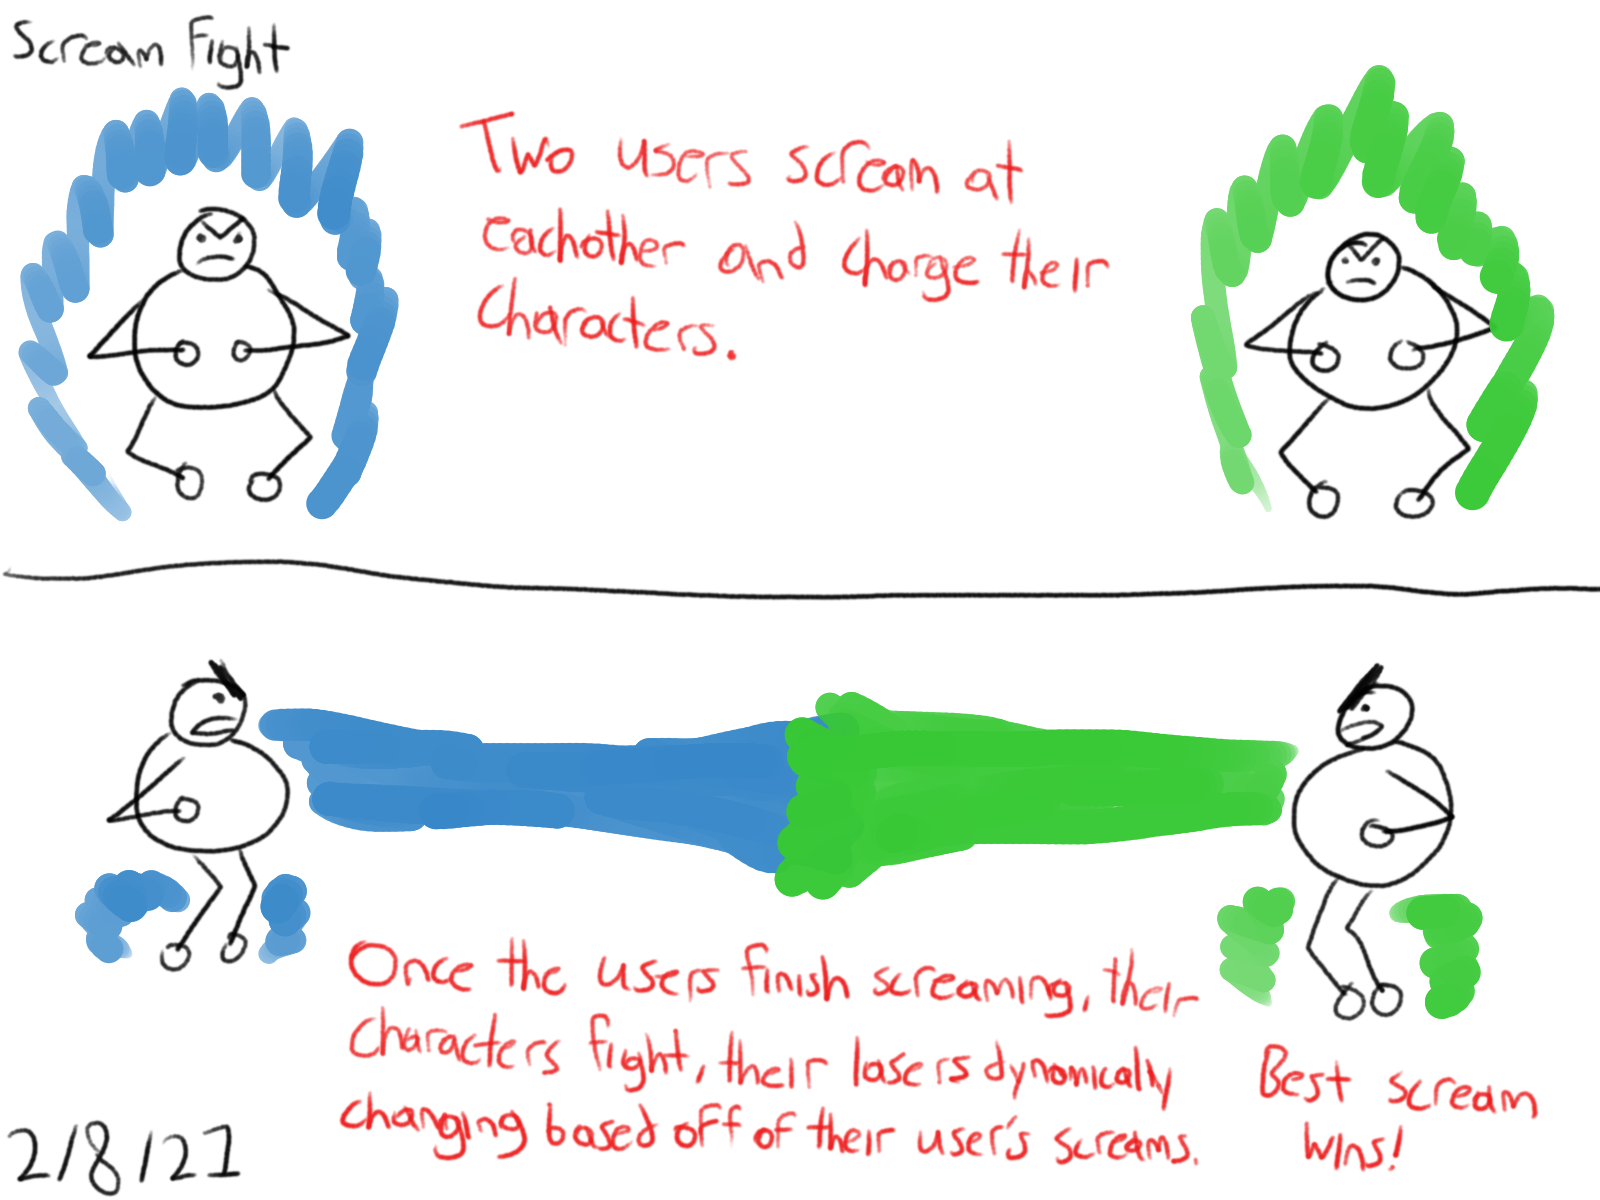 Scream Fight
Two users scream at
eachother and charge their
characters.
Once the users finish screaming, their
characters fight, their lasers dynamically
changing based off of their user's screams.
Best scream
wins!
2/8/21